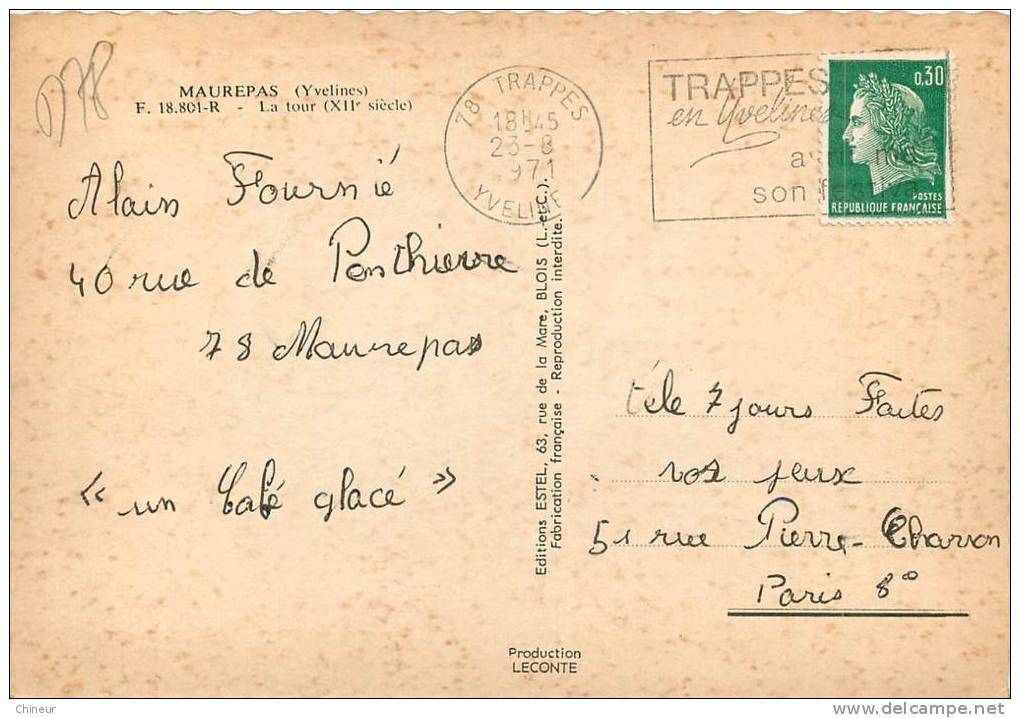 D78
MAUREPAS (Yvelines)
F. 18.801-R - La tour (XIIe siècle)
Alain Fournié
40 rue de Penthievre
78 Maurepas
« un Café glacé »
78 TRAPPES
18H45
23-8
1971
YVELINES
TRAPPES
en Yvelines
son festival
0,30
POSTES
REPUBLIQUE FRANÇAISE
Editions ESTEL, 63, rue de la Mare, BLOIS (L.-et-C.).
Fabrication française - Reproduction interdite.
télé 7 jours Faites
vos jeux
51 rue Pierre-Charron
Paris 8°
Production
LECONTE
Chineur
www.delcampe.net